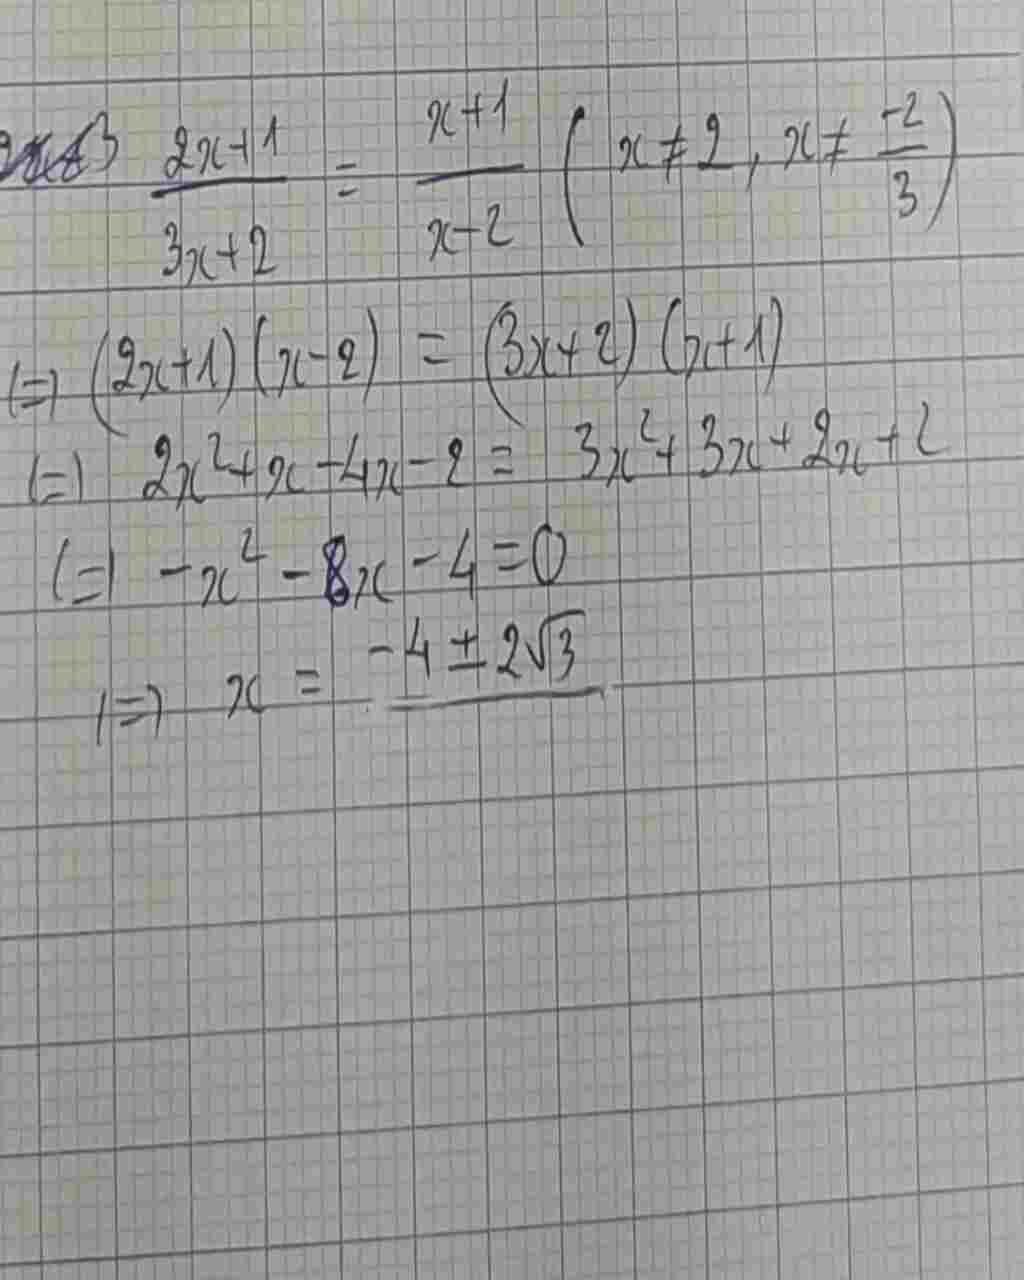 3 (2x+1)/(3x+2) = (x+1)/(x-2) (x ≠ 2, x ≠ -2/3)
(=) (2x+1)(x-2) = (3x+2)(x+1)
(=) 2x²+x-4x-2 = 3x²+3x+2x+2
(=) -x²-8x-4=0
(=) x = -4±2√3